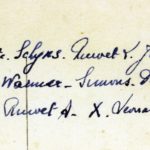 Schyns. Ruwet L. J
Warnier - Simons. D
Ruwet A - X. Venna